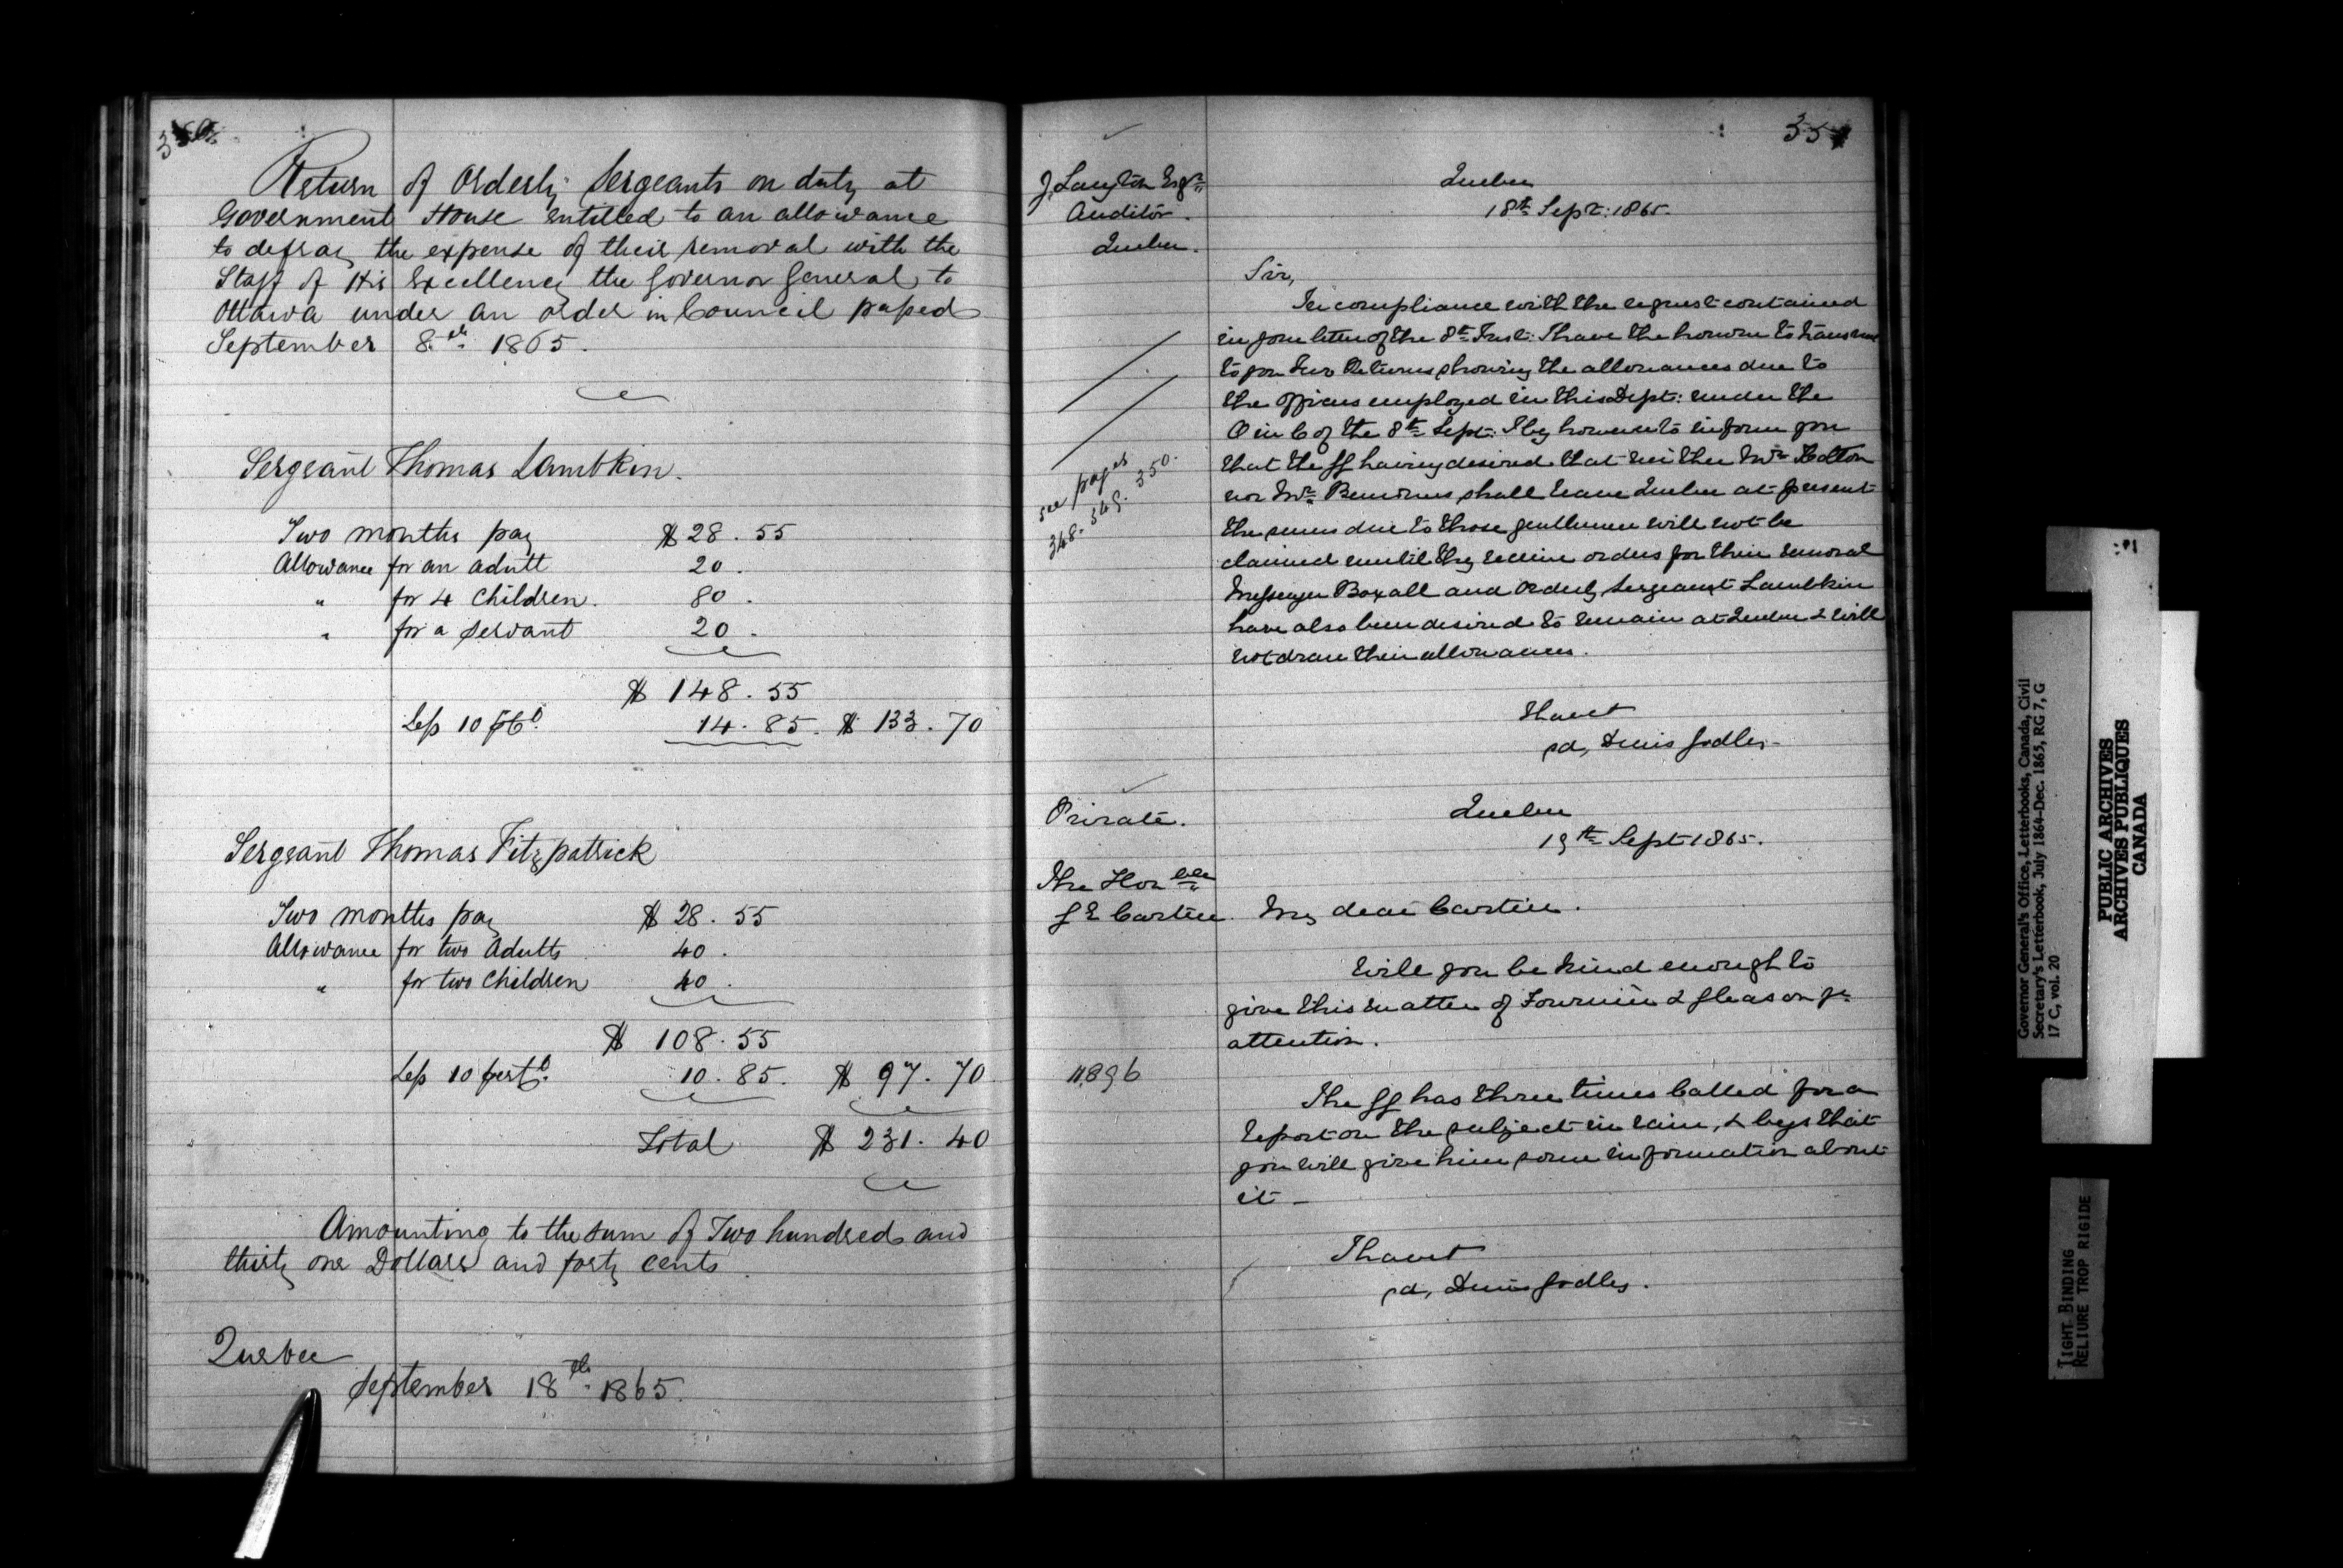 350
Return of Orderly Sergeants on duty at
Government House entitled to an allowance
to defray the expense of their removal with the
Staff of His Excellency the Governor General to
Ottawa under an order in Council passed
September 8th 1865.
Sergeant Thomas Lambkin.
Two months pay $28.55
Allowance for an adult 20.
" for 4 Children. 80.
" for a Servant 20.
$148.55
Less 10 p Ct. 14.85. $133.70
Sergeant Thomas Fitzpatrick
Two months pay $28.55
Allowance for two Adults 40.
" for two Children 40.
$108.55
Less 10 per Ct. 10.85. $97.70
Total $231.40
Amounting to the sum of Two hundred and
thirty one Dollars and forty cents.
Quebec
September 18th 1865.
351
J. Langton Esqre
Auditor.
Quebec.
Quebec
18th Sept: 1865.
Sir,
In compliance with the request contained
in your letter of the 8th Inst: I have the honour to transmit
to you two Returns showing the allowances due to
the Officers employed in this Dept: under the
O in C of the 8th Sept: I beg however to inform you
that the GG having desired that neither Mr
nor Mr shall leave Quebec at present
the sums due to those gentlemen will not be
claimed until they receive orders for their removal
Messenger Boxall and Orderly Sergeant Lambkin
have also been desired to remain at Quebec & will
not draw their allowances.
see pages
348. 349. 350.
I have &
sd, Denis Godley
Private.
Quebec
19th Sept 1865.
The Honble
G E Cartier
My dear Cartier.
Will you be kind enough to
give this matter of Fournier & Gleason yr
attention.
11896
The GG has three times called for a
report on the subject in vain, & begs that
you will give him some information about
it —
I have &
sd, Denis Godley.
Governor General's Office, Letterbooks, Canada, Civil
Secretary's Letterbook, July 1864-Dec. 1865, RG 7, G
17 C, vol. 20
PUBLIC ARCHIVES
ARCHIVES PUBLIQUES
CANADA
TIGHT BINDING
RELIURE TROP RIGIDE